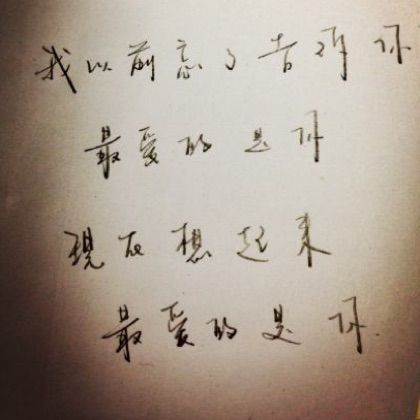 我以前忘了告诉你
最爱的是你
现在想起来
最爱的是你